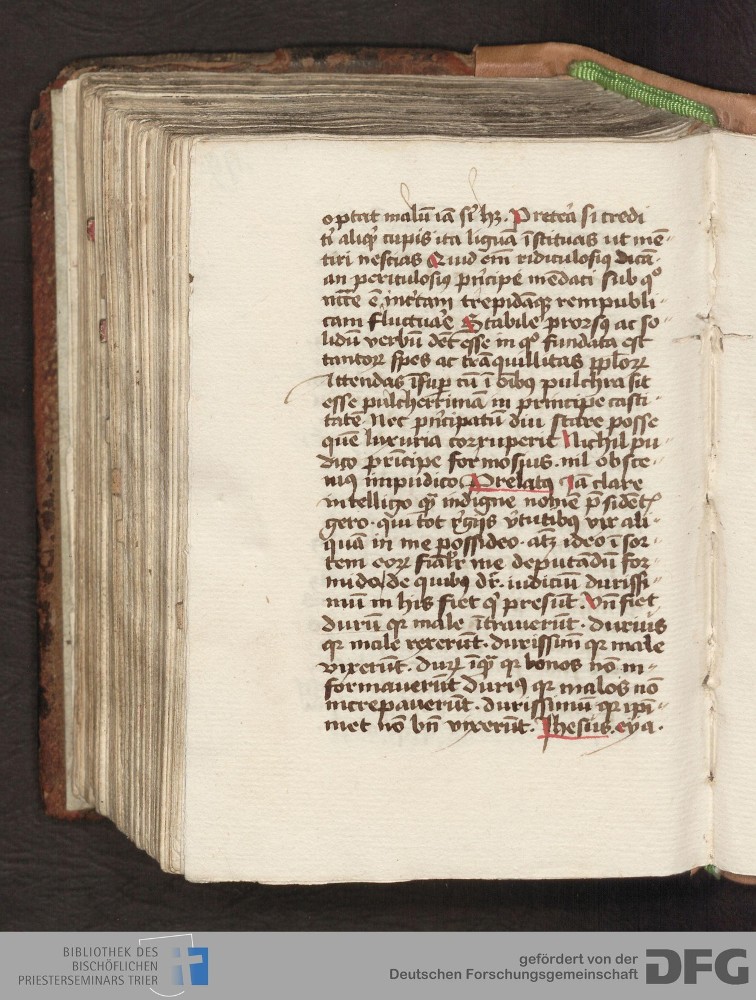 optat malū iā sr̄ hʒ. Preteā si credi
ti aliqͥ cupis ita liguā īstituas ut mē-
tiri nescias Quid em̄ ridiculosiꝰ dicā-
an periculosiꝰ pͥncipe mēdaci sub qͦ
incͥtam trepidāqʒ rempubli-
cam fluctuaͤe Stabile prorsꝰ ac so-
lidū verbū dēt esse in qͦ fundata est
tantoꝝ spes ac trāquillitas pploꝝ
Attendas īsuꝑ cū ī oībꝰ pulchra sit
esse pulcherrimā in principe casti-
tatē. Nec pͥncipatū diu stare posse
quē luxuria corruperit Nichil pu
dico principe formosius. nil obsce-
nius impudico Prelatꝰ Iā clare
intelligo qꝫ indigne nomē p̄sidēt
gero. qui tot egͥis v̓tutibꝰ vix ali-
quā in me possideo. atʒ ideo ī sor-
tem eoꝝ me deputādū for-
mido/de quibꝰ dr̄. iudiciū durissi-
mū in his fiet qͥ presūt. Vn̄ fiet
durū qꝛ male ītraverūt. durius
qꝛ male rexerūt. durissimū qꝛ male
vixerūt. durū īqꝫ qꝛ bonos nō in-
formaverūt duriꝰ qꝛ malos nō
increpaverūt. durissimū qꝛ ipī-
met nō bn̄ vixerūt. Jhesus. eya.
BIBLIOTHEK DES
BISCHÖFLICHEN
PRIESTERSEMINARS TRIER
gefördert von der
Deutschen Forschungsgemeinschaft
DFG